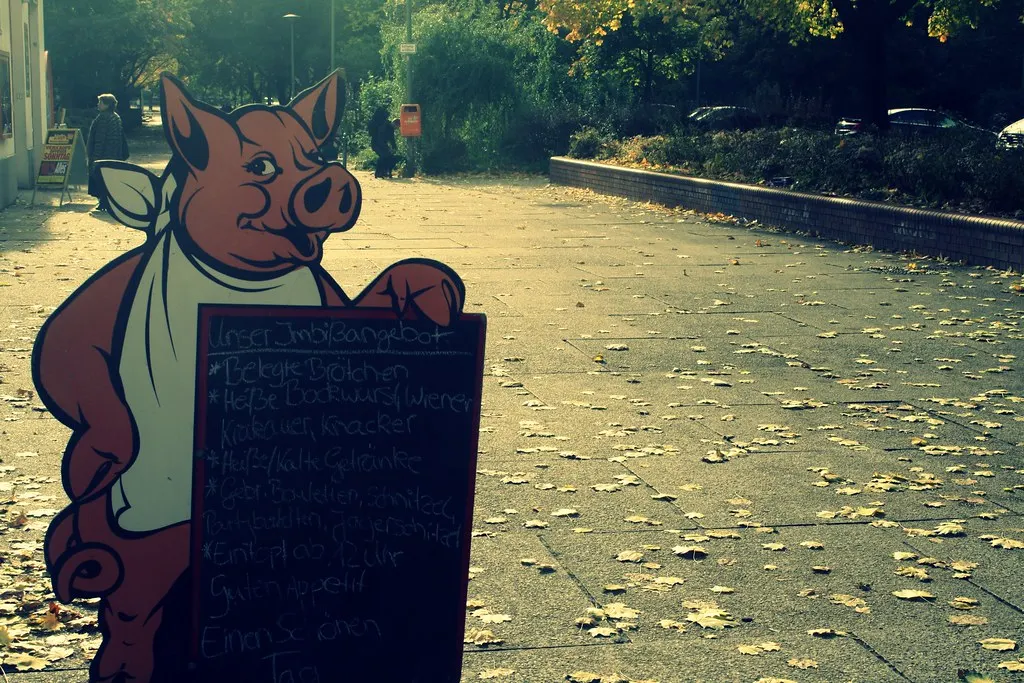 Unser Imbißangebot
* Belegte Brötchen
* Heiße Bockwurst/Wiener
Krakauer, Knacker
* Heiße/Kalte Getränke
* Gebr. Bouletten, Schnitzel
Jägerschnitzel
* Eintopf ab 12 Uhr
Guten Appetit
Einen Schönen
Tag
SONNTAG